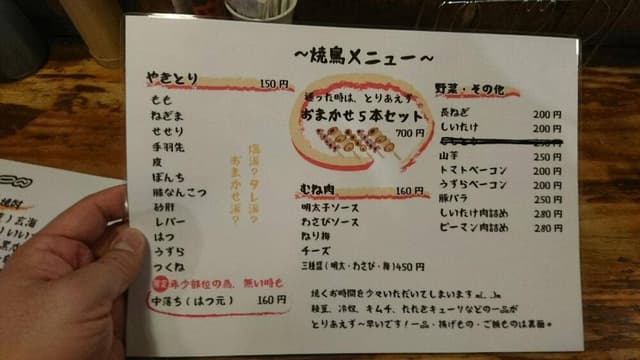 ～焼鳥メニュー～
やきとり 150円
もも
ねぎま
せせり
手羽先
皮
ぼんち
豚なんこつ
砂肝
レバー
はつ
うずら
つくね
希少部位の為、無い時も
中落ち（はつ元） 160円
塩派？タレ派？
おまかせ派？
迷った時は、とりあえず
おまかせ5本セット
700円
むね肉 160円
明太子ソース
わさびソース
ねり梅
チーズ
三種盛（明太・わさび・梅）450円
野菜・その他
長ねぎ 200円
しいたけ 200円
山芋 250円
トマトベーコン 200円
うずらベーコン 200円
豚バラ 250円
しいたけ肉詰め 280円
ピーマン肉詰め 280円
焼くお時間を少々いただいてしまいますm(_ _)m
枝豆、冷奴、キムチ、たたきキューリなどの一品が
とりあえず～早いです！一品・揚げもの・ご飯ものは裏面＊